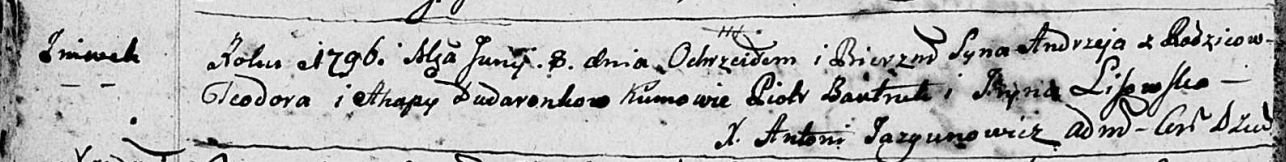 Roku 1796. Msca Junij. 8. dnia Ochrzciłem i Bierzmo Syna Andrzeja z Rodzicow-
Teodora i Ahapy Dudaronkow Kumowie Piotr Bautruk i Jryna Lisowska —
X. Antoni Jazgunowicz adm-